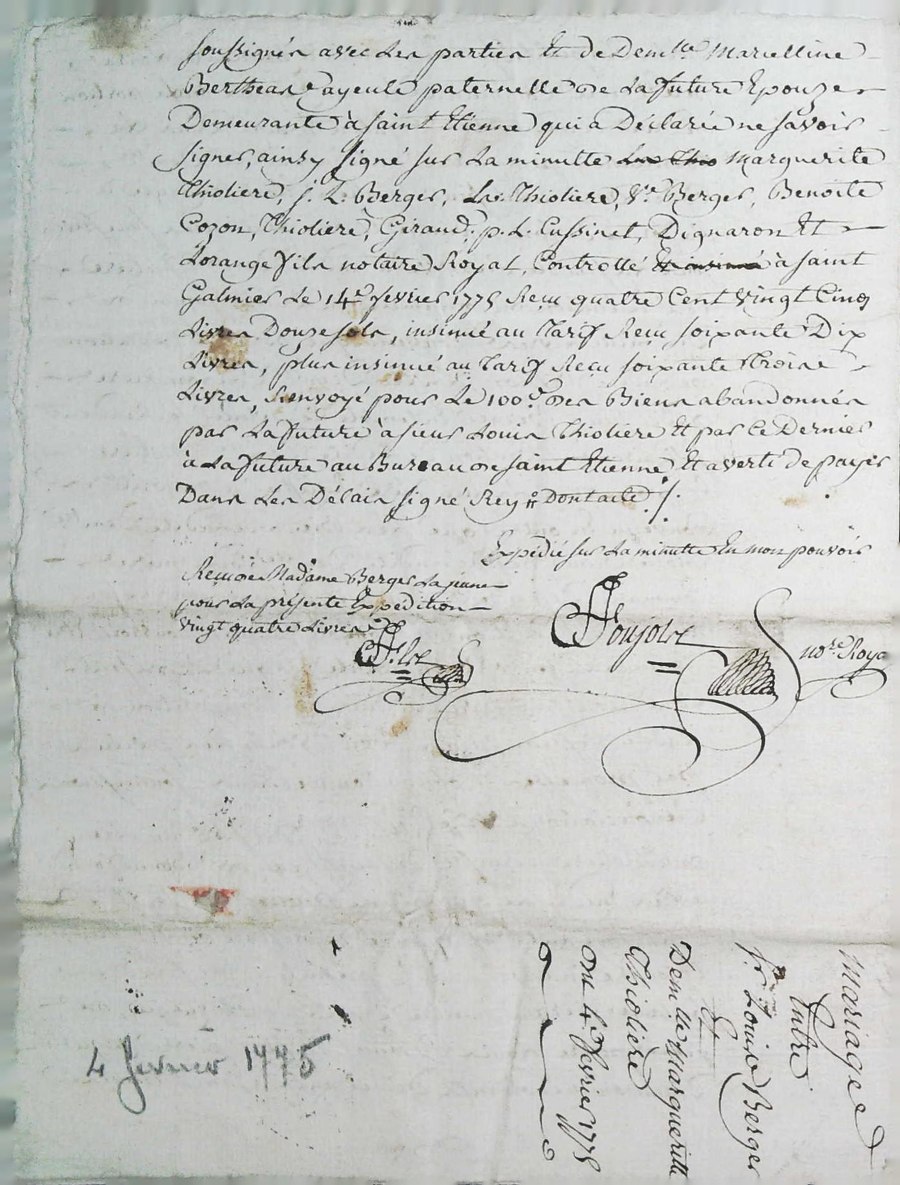 soussignés avec les parties Et de Demlle Marcelline
Bertheas ayeule paternelle de La future Epouze
Demeurante à saint Etienne qui a Déclarée ne savoir
signer, ainsy signé sur La minutte Marguerite
Thioliere, f. L. Berger, Ls. Thioliere, Ve. Berger, Benoite
Cozon, Thioliere, Giraud, p. L. Cussinel, Dignaron Et
Lorange fils notaire Royal, Controllé à saint
Galmier Le 14e. fevrier 1775 Recu quatre Cent vingt Cinq
Livres Douze sols, insinué au Tarif Recu soixante Dix
Livres, plus insinué au Tarif Recu soixante Troise
Livres, Renvoyé pour Le 100e. des Biens abandonnés
par La future à sieur Louis Thioliere Et par ce Dernier
à La future au Bureau de saint Etienne Et averti de payer
Dans Les Délais signé Rey Dont acte ./.
Expédié sur La minutte En mon pouvoir
Recu de Madame Berger La jeune
pour La présente Expédition
vingt quatre Livres
nore. Roya
Mariage
Entre
sr. Louis Berger
Et
Demlle Marguerite
Thioliere
Du 4e. fevrier 1775
4 fevrier 1775